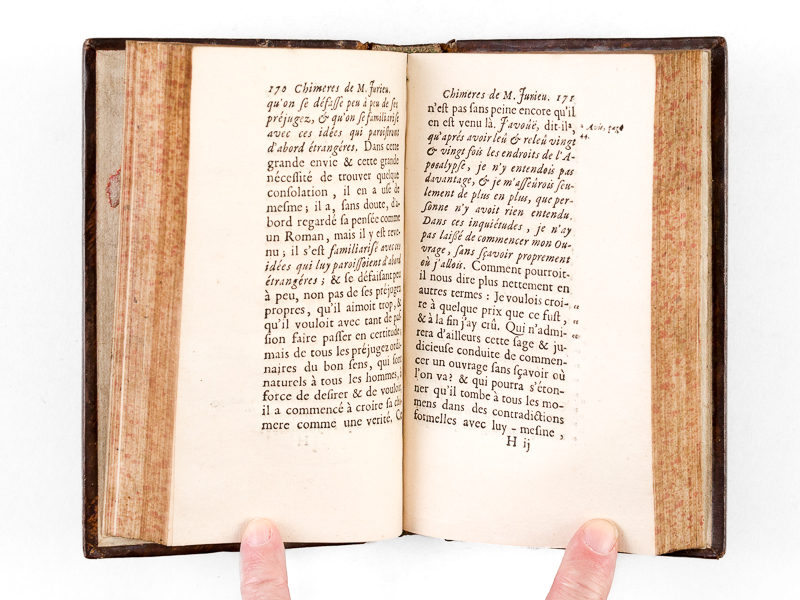 170 Chimeres de M. Jurieu.
qu'on se défasse peu à peu de ses
préjugez, & qu'on se familiarise
avec ces idées qui paroistront
d'abord étrangéres. Dans cette
grande envie & cette grande
nécessité de trouver quelque
consolation, il en a usé de
mesme; il a, sans doute, d'a-
bord regardé sa pensée comme
un Roman, mais il y est reve-
nu; il s'est familiarisé avec ces
idées qui luy paroissoient d'abord
étrangéres; & se défaisant peu
à peu, non pas de ses préjugez
propres, qu'il aimoit trop, &
qu'il vouloit avec tant de pas-
sion faire passer en certitude,
mais de tous les préjugez ordi-
naires du bon sens, qui sont
naturels à tous les hommes, à
force de desirer & de vouloir,
il a commencé à croire sa chi-
mere comme une verité. Ce
Chimeres de M. Jurieu. 171
n'est pas sans peine encore qu'il
en est venu là. J'avoüë, dit-il,
qu'aprés avoir leû & releû vingt
& vingt fois les endroits de l'A-
pocalypse, je n'y entendois pas
davantage, & je m'asseûrois seu-
lement de plus en plus, que per-
sonne n'y avoit rien entendu.
Dans ces inquiétudes, je n'ay
pas laissé de commencer mon Ou-
vrage, sans sçavoir proprement
où j'allois. Comment pourroit-
il nous dire plus nettement en
autres termes: Je voulois croi-
re à quelque prix que ce fust,
& à la fin j'ay crû. Qui n'admi-
rera d'ailleurs cette sage & ju-
dicieuse conduite de commen-
cer un ouvrage sans sçavoir où
l'on va? & qui pourra s'éton-
ner qu'il tombe à tous les mo-
mens dans des contradictions
formelles avec luy-mesme,
H ij